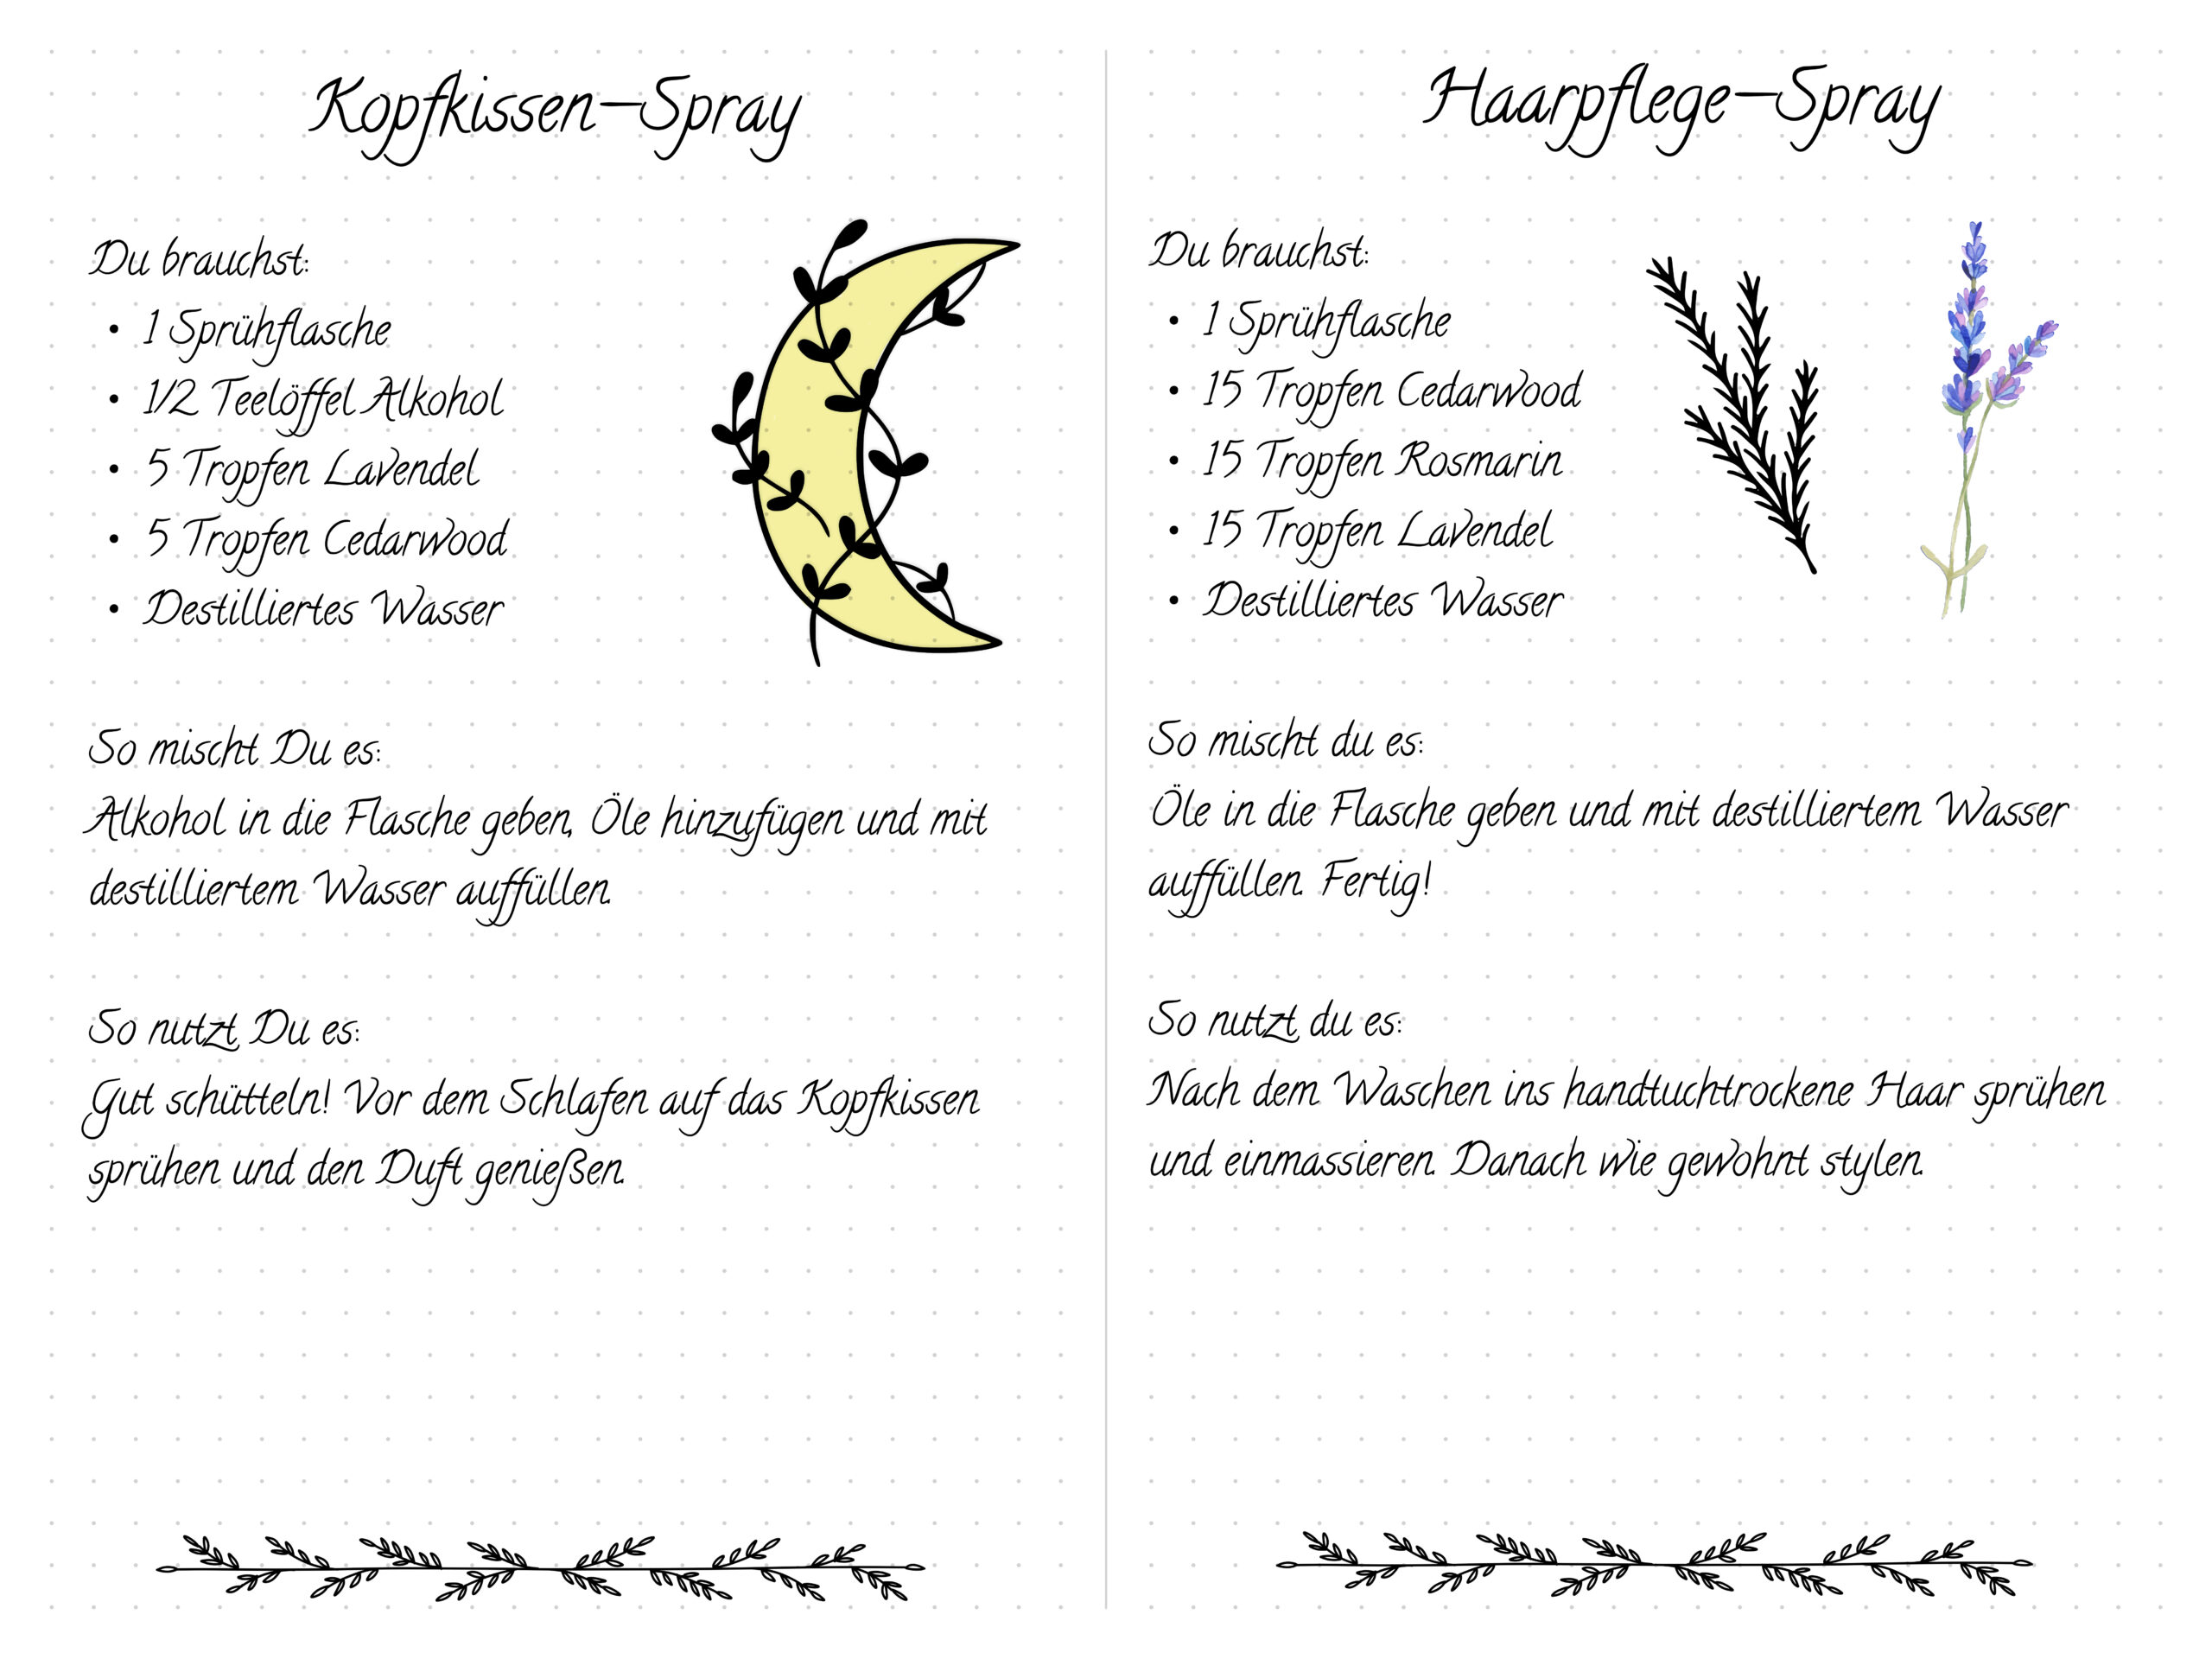 Kopfkissen-Spray
Du brauchst:
• 1 Sprühflasche
• 1/2 Teelöffel Alkohol
• 5 Tropfen Lavendel
• 5 Tropfen Cedarwood
• Destilliertes Wasser
So mischt Du es:
Alkohol in die Flasche geben, Öle hinzufügen und mit
destilliertem Wasser auffüllen.
So nutzt Du es:
Gut schütteln! Vor dem Schlafen auf das Kopfkissen
sprühen und den Duft genießen.
Haarpflege-Spray
Du brauchst:
• 1 Sprühflasche
• 15 Tropfen Cedarwood
• 15 Tropfen Rosmarin
• 15 Tropfen Lavendel
• Destilliertes Wasser
So mischt du es:
Öle in die Flasche geben und mit destilliertem Wasser
auffüllen. Fertig!
So nutzt du es:
Nach dem Waschen ins handtuchtrockene Haar sprühen
und einmassieren. Danach wie gewohnt stylen.